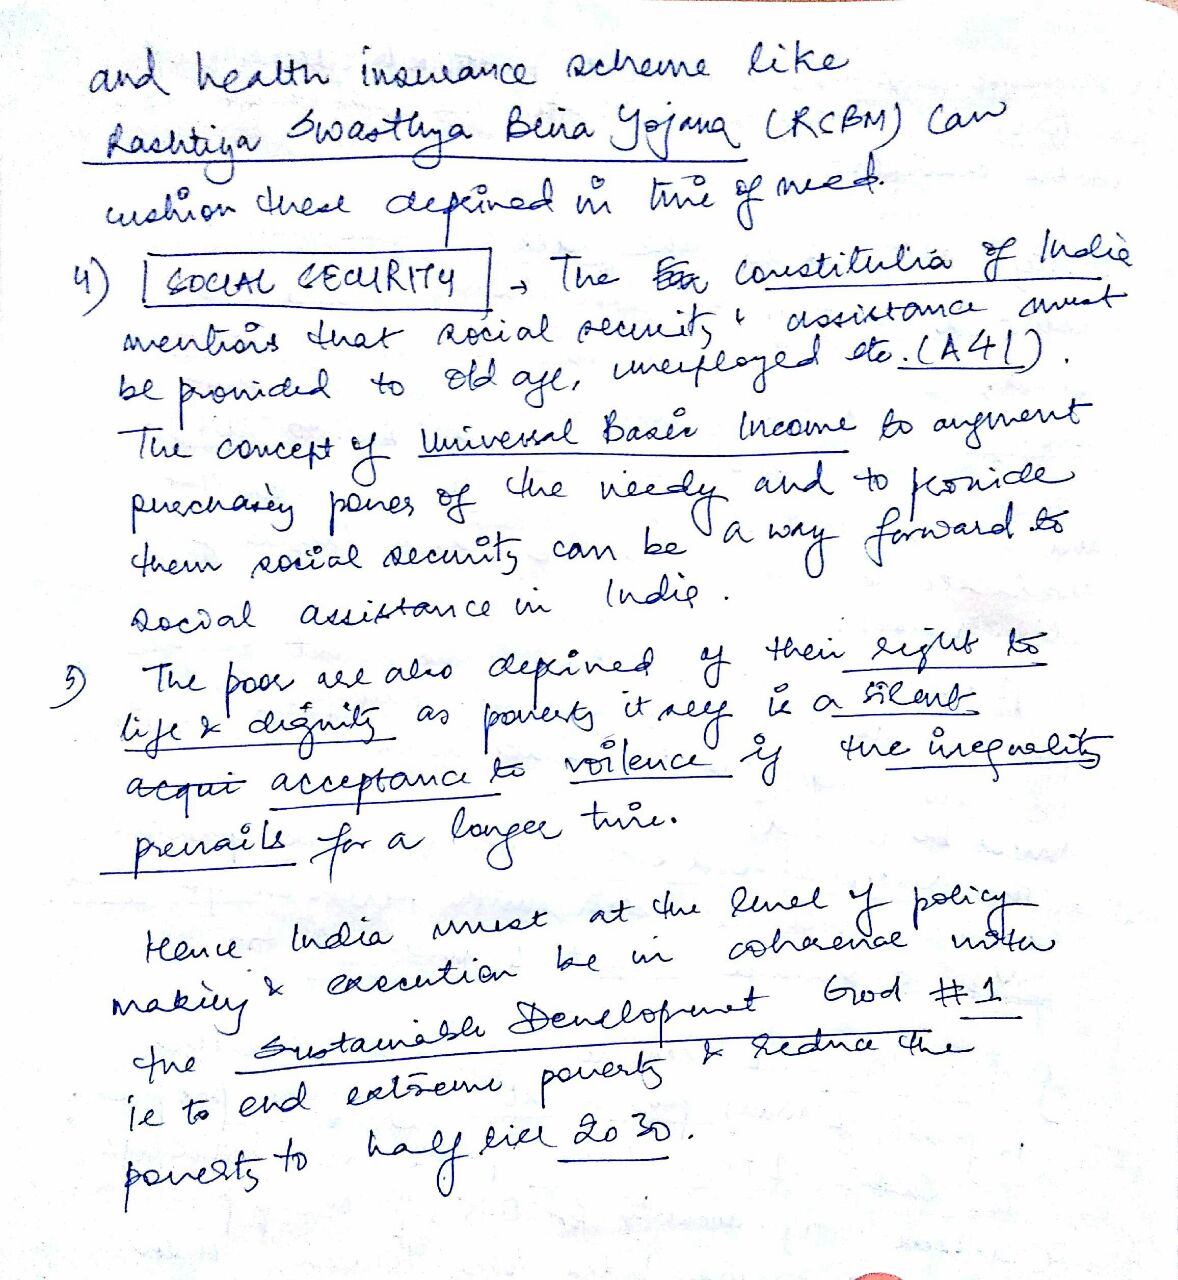 and health insurance scheme like
Rashtiya Swasthya Bima Yojana (RCBM) can
cushion these deprived in time of need.
4) SOCIAL SECURITY → The constitution of India
mentions that social security & assistance must
be provided to old age, unemployed etc. (A41).
The concept of Universal Basic Income to augment
purchasing power of the needy and to provide
them social security can be a way forward to
social assistance in India.
5) The poor are also deprived of their right to
life & dignity as poverty itself is a silent
acqui acceptance to voilence if the inequality
prevails for a longer time.
Hence India must at the level of policy
making & execution be in coherence with
the Sustainable Development Goal #1
ie to end extreme poverty & reduce the
poverty to half till 2030.